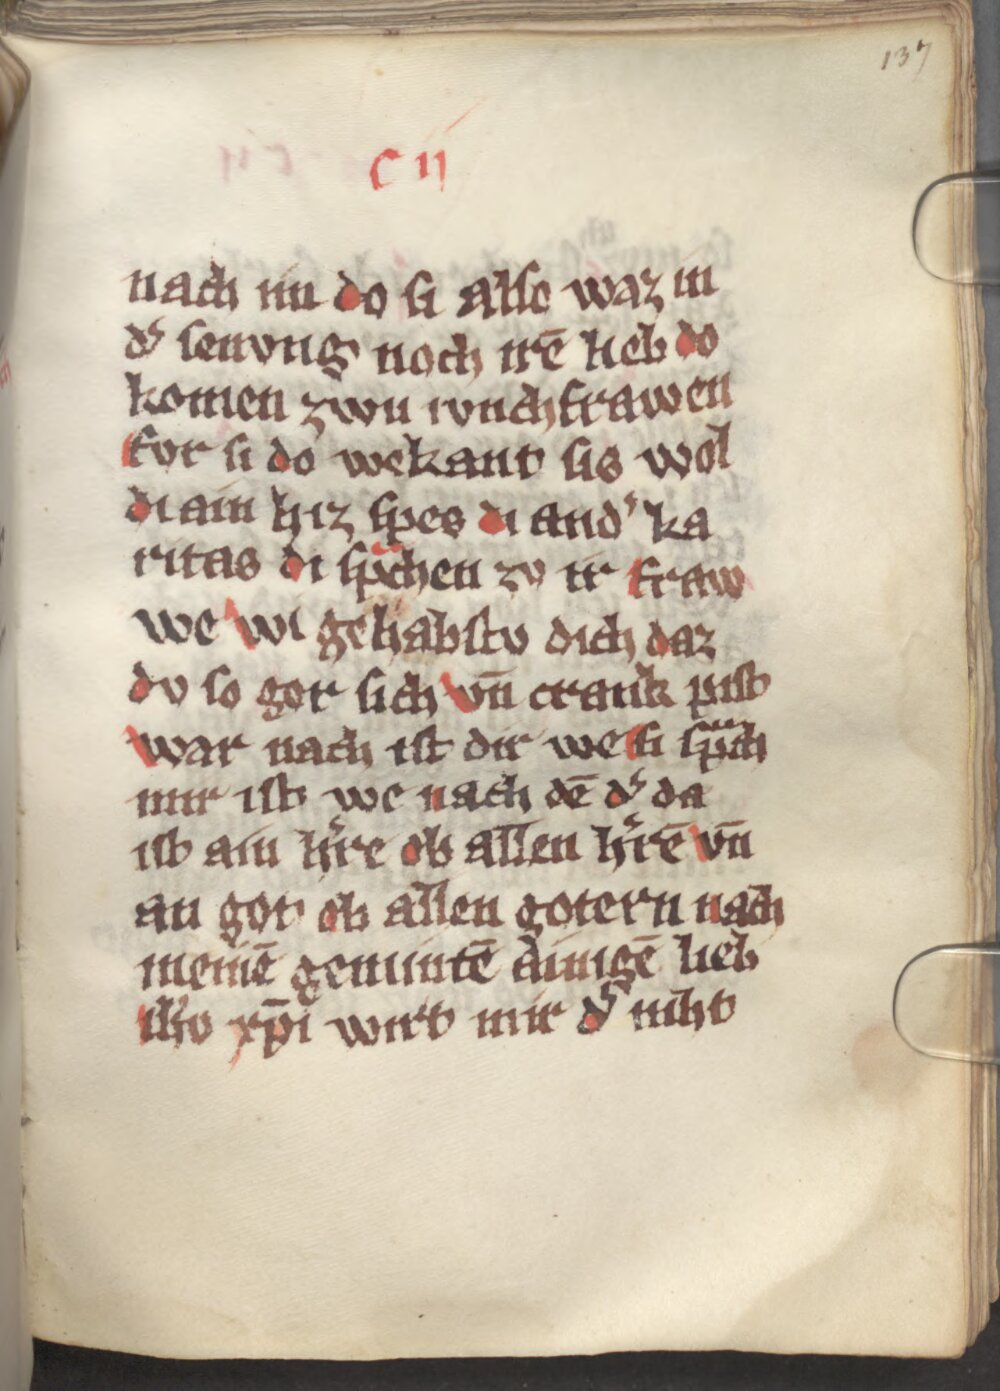 137
C ii
nach im do si also waz in
d᷑ senvng noch irē lieb do
komen zwu ivnchfrawen
fvr si do wekant sis wol
di ain hiz spes di and᷑ ka
ritas di sp̃chen zv ir fraw
we wi gehabstv dich daz
dv so gor sich vn̄ crank pist
war nach ist dir we si sp̃ch
mir ist we nach dē d᷑ da
ist ain h᷑re ob allen h᷑rē vn̄
an got ob allen gotern nach
meinē gemintē ainigē lieb
ih̅v xp̅i wirt mir d᷑ niht